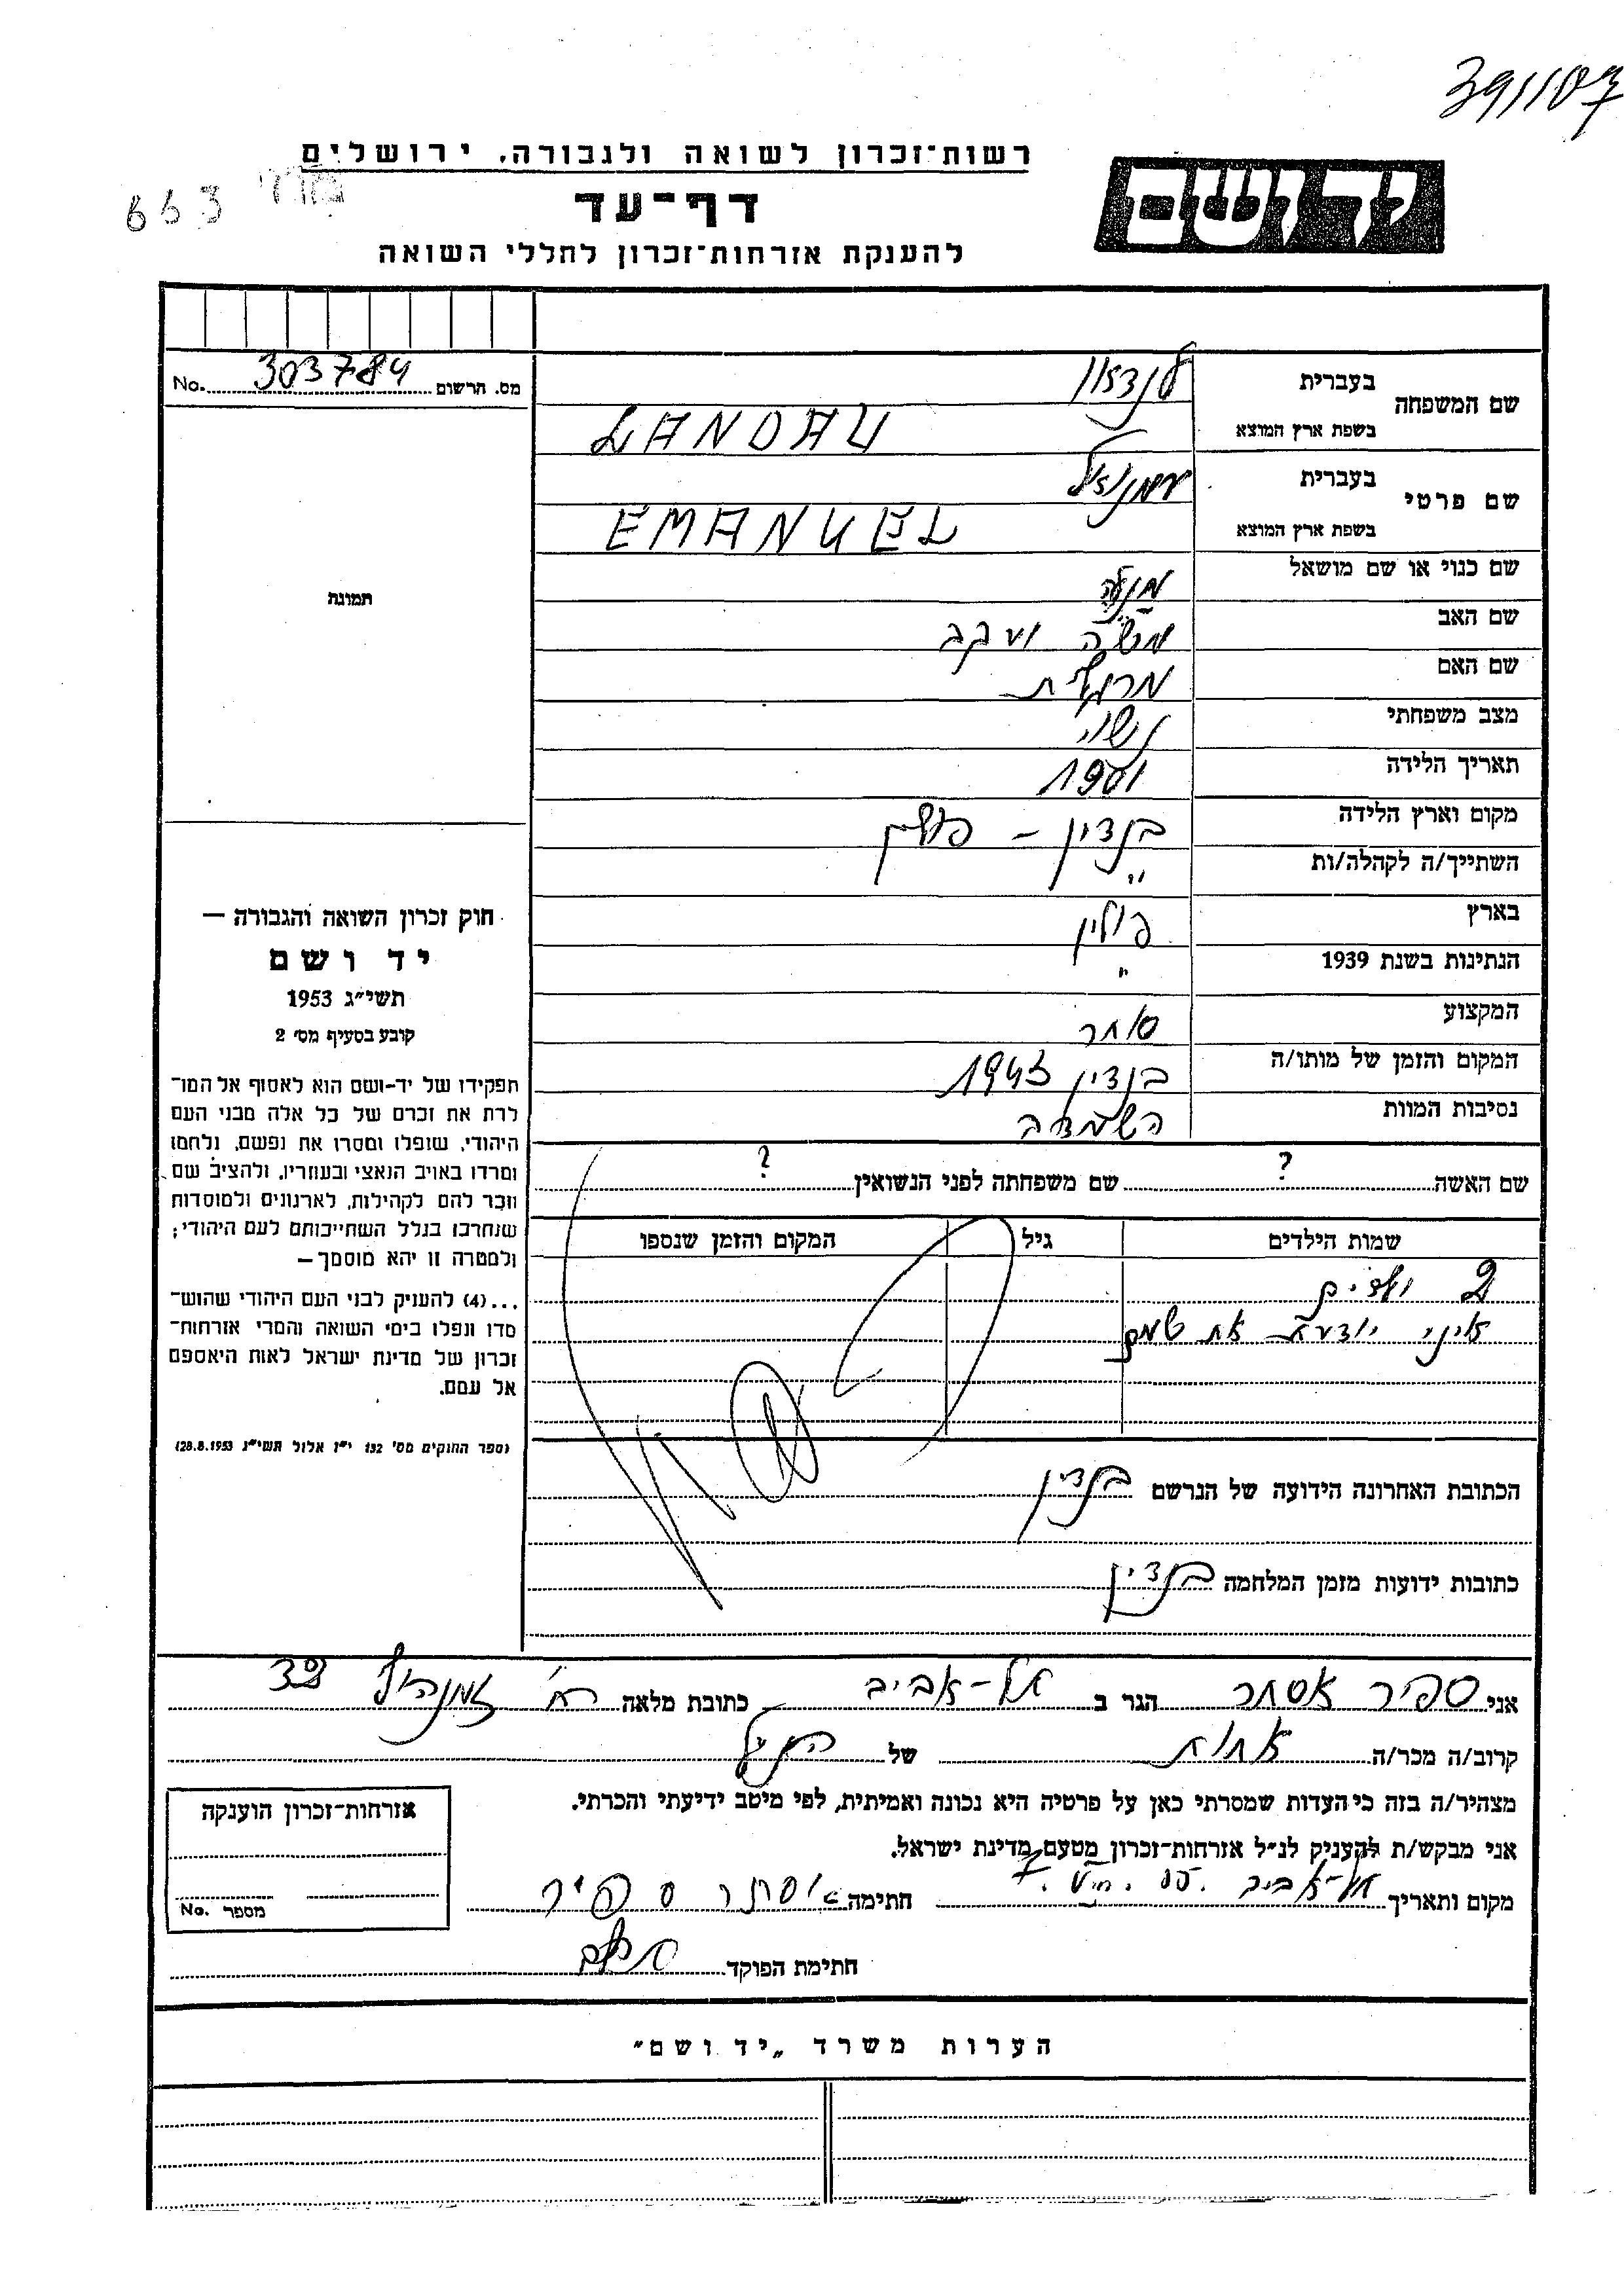 391107
רשות־זכרון לשואה ולגבורה, ירושלים
יד ושם
663
דף־עד
להענקת אזרחות־זכרון לחללי השואה
מס. הרשום 303784 No.
שם המשפחה
בעברית לנדאו
בשפת ארץ המוצא LANDAU
שם פרטי
בעברית עמנואל
בשפת ארץ המוצא EMANUEL
שם כנוי או שם מושאל
שם האב משה יעקב
שם האם מרגלית
מצב משפחתי נשוי
תאריך הלידה 1901
מקום וארץ הלידה בנדין – פולין
השתייך/ה לקהלה/ות "
בארץ פולין
הנתינות בשנת 1939 "
המקצוע סוחר
המקום והזמן של מותו/ה בנדין 1943
נסיבות המוות השמדה
תמונה
חוק זכרון השואה והגבורה —
יד ושם
תשי״ג 1953
קובע בסעיף מס׳ 2
תפקידו של יד-ושם הוא לאסוף אל המו־
לדת את זכרם של כל אלה מבני העם
היהודי, שנפלו ומסרו את נפשם, נלחמו
ומרדו באויב הנאצי ובעוזריו, ולהציב שם
וזכר להם לקהילות, לארגונים ולמוסדות
שנחרבו בגלל השתייכותם לעם היהודי;
ולמטרה זו יהא מוסמך —
...(4) להעניק לבני העם היהודי שהוש־
מדו ונפלו בימי השואה והמרי אזרחות־
זכרון של מדינת ישראל לאות היאספם
אל עמם.
(ספר החוקים מס׳ 132 י״ז אלול תשי״ג 28.8.1953)
שם האשה ? שם משפחתה לפני הנשואין ?
שמות הילדים גיל המקום והזמן שנספו
2 ילדים
אינני יודעת את שמם
הכתובת האחרונה הידועה של הנרשם בנדין
כתובות ידועות מזמן המלחמה בנדין
אני ספיר אסתר הגר ב תל-אביב כתובת מלאה רח׳ זמנהוף 32
קרוב/ה מכר/ה אחות של הנ״ל
מצהיר/ה בזה כי העדות שמסרתי כאן על פרטיה היא נכונה ואמיתית, לפי מיטב ידיעתי והכרתי.
אני מבקש/ת להעניק לנ״ל אזרחות־זכרון מטעם מדינת ישראל.
מקום ותאריך תל-אביב חתימה אסתר ספיר
חתימת הפוקד
אזרחות־זכרון הוענקה
מספר No.
הערות משרד „יד ושם״